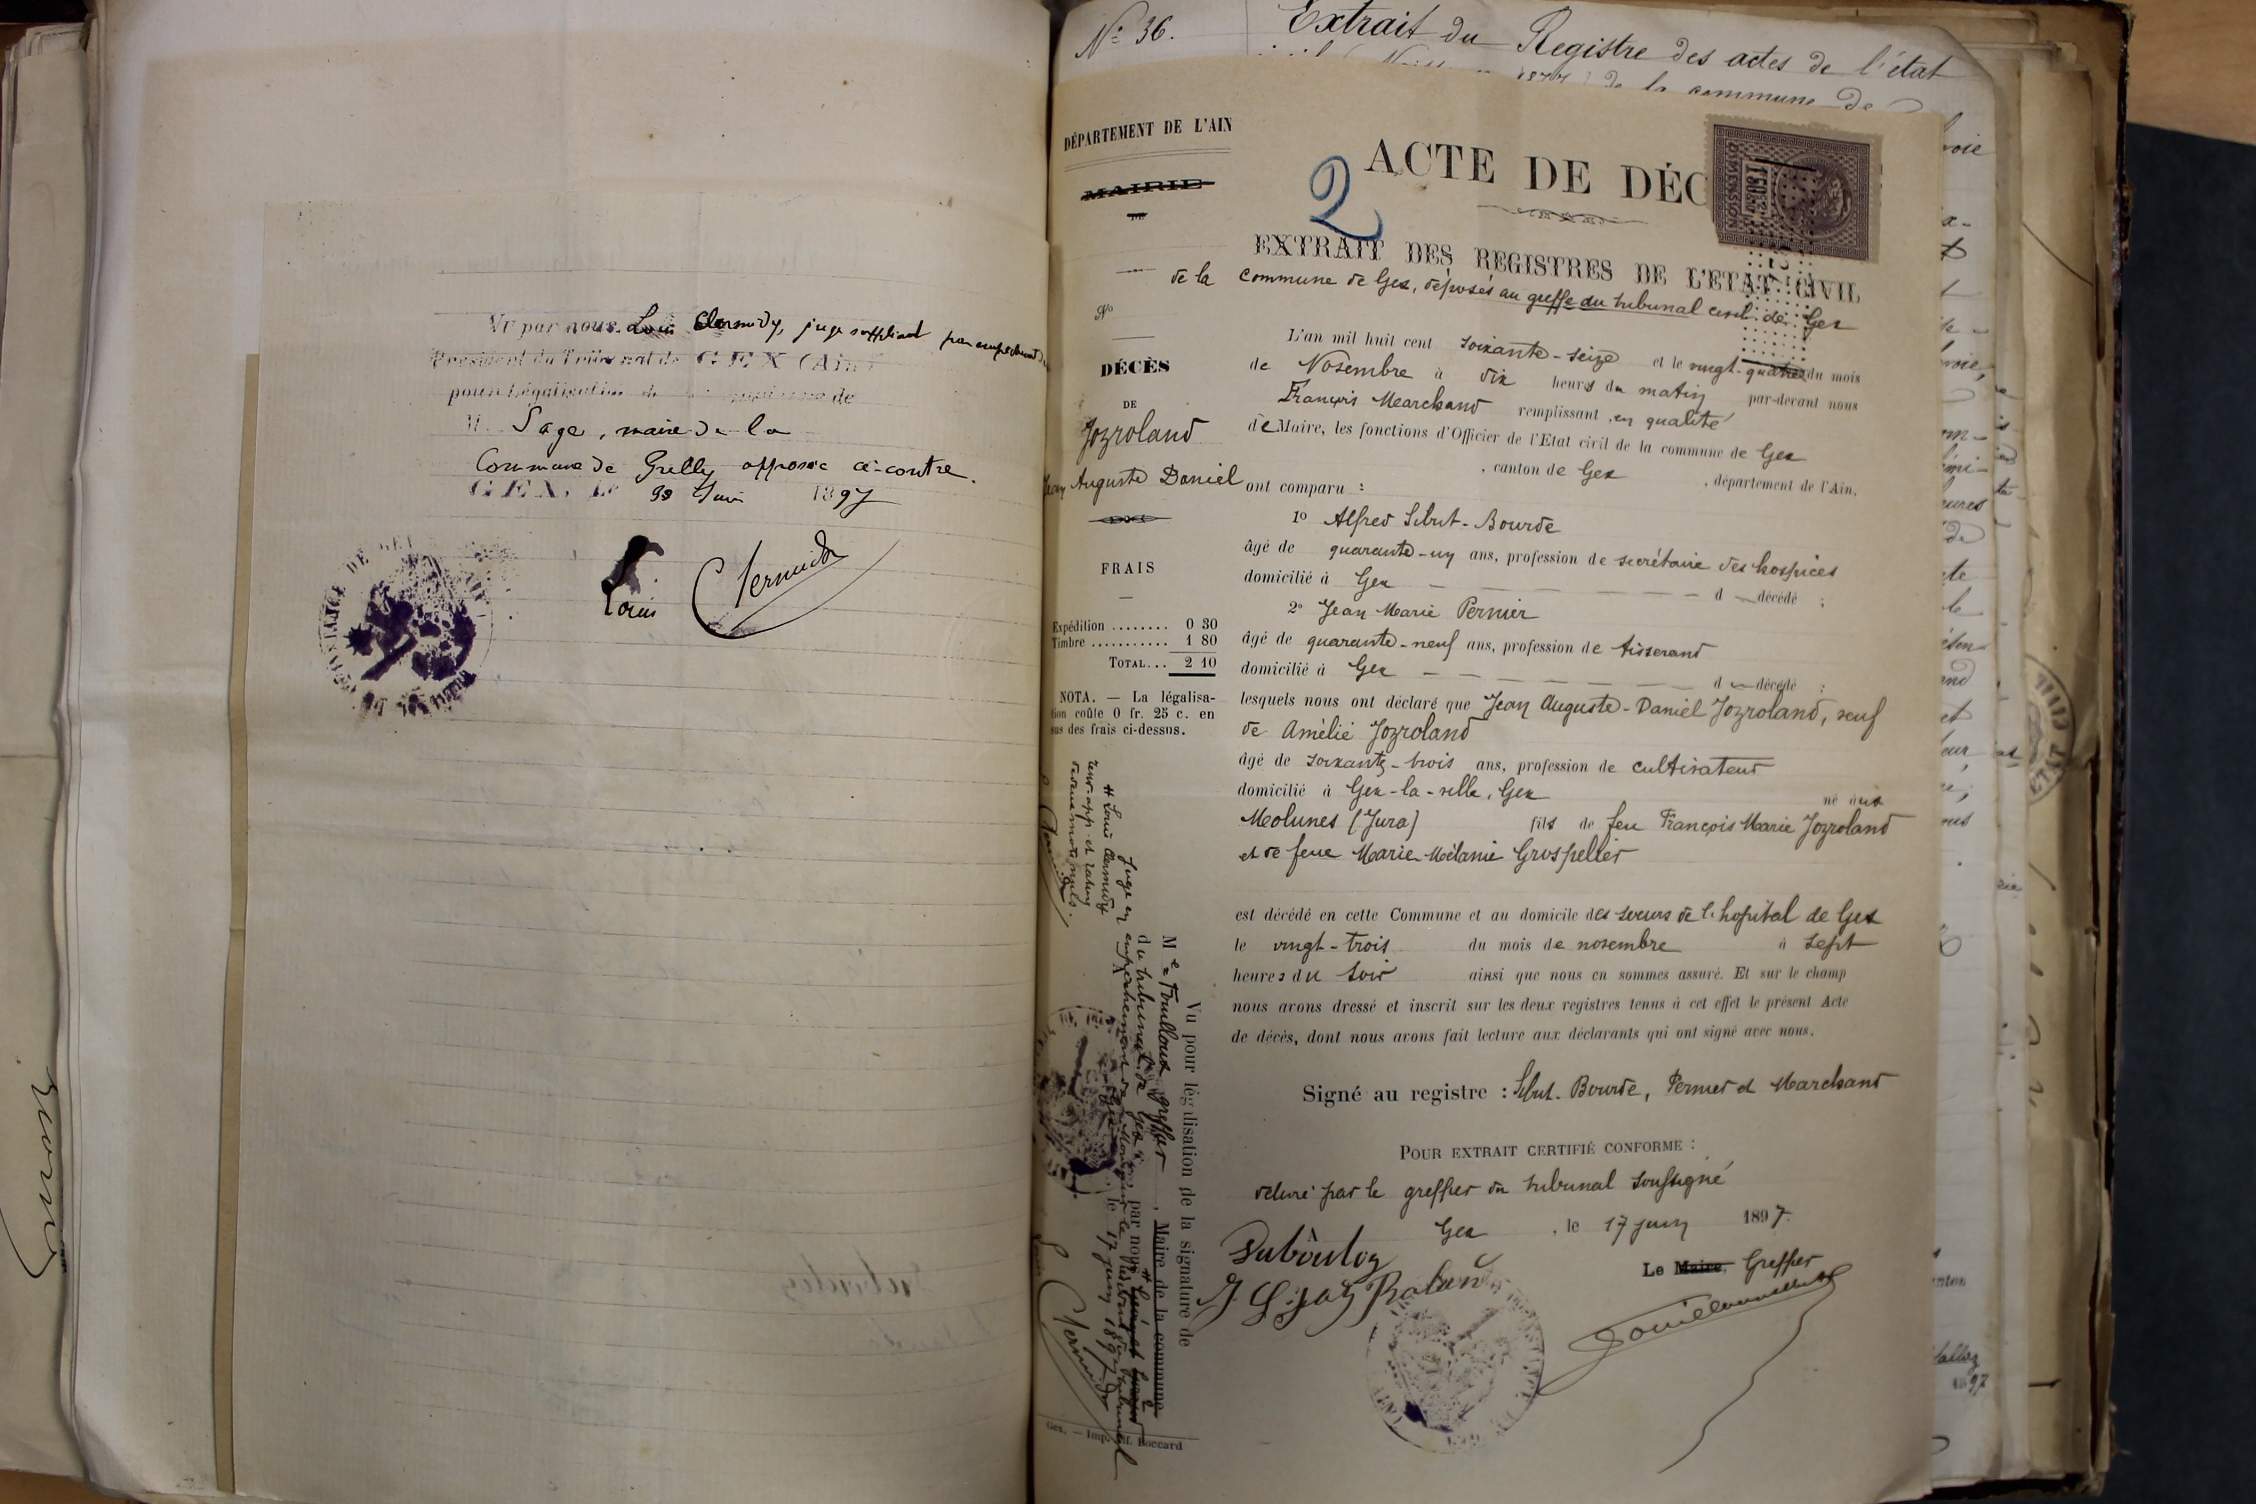 Vu par nous Louis Clermidy, juge suppléant par empêchement du
Président du Tribunal de GEX (Ain)
pour Légalisation de de
M. Sage, maire de la
Commune de Grilly apposée ci-contre.
GEX, Le Juin 1897
Louis Clermidy
N° 36.
Extrait du Registre des actes de l'état
de la commune de
DÉPARTEMENT DE L'AIN
MAIRIE
DE
N°
DÉCÈS
DE
Jozroland
Jean Auguste Daniel
FRAIS
Expédition ........ 0 30
Timbre ........... 1 80
TOTAL... 2 10
NOTA. — La légalisa-
tion coûte 0 fr. 25 c. en
sus des frais ci-dessus.
2
ACTE DE DÉC
EXTRAIT DES REGISTRES DE L'ETAT CIVIL
de la commune de Gex, déposés au greffe du tribunal civil de Gex
L'an mil huit cent soixante-seize et le vingt-quatre du mois
de Novembre à dix heures du matin par-devant nous
François Marchand remplissant, en qualité
de Maire, les fonctions d'Officier de l'Etat civil de la commune de Gex
, canton de Gex , département de l'Ain,
ont comparu :
1° Alfred Sibut-Bourde
âgé de quarante-un ans, profession de secrétaire des hospices
domicilié à Gex d décédé ;
2° Jean Marie Pernier
âgé de quarante-neuf ans, profession de tisserand
domicilié à Gex d décédé ;
lesquels nous ont déclaré que Jean Auguste-Daniel Jozroland, veuf
de Amélie Jozroland
âgé de soixante-trois ans, profession de cultivateur
domicilié à Gex-la-ville, Gex né aux
Molunes (Jura) fils de feu François Marie Jozroland
et de feue Marie Mélanie Grospellier
est décédé en cette Commune et au domicile des soeurs de l'hopital de Gex
le vingt-trois du mois de novembre à sept
heures du soir ainsi que nous en sommes assuré. Et sur le champ
nous avons dressé et inscrit sur les deux registres tenus à cet effet le présent Acte
de décès, dont nous avons fait lecture aux déclarants qui ont signé avec nous.
Signé au registre : Sibut-Bourde, Pernier et Marchand
POUR EXTRAIT CERTIFIÉ CONFORME :
délivré par le greffier du tribunal soussigné
Gex , le 17 juin 1897.
Le Maire, Greffier
Dubouloz
Vu pour légalisation de la signature de
Me Fouilloux greffier , Maire de la commune
du tribunal de Gex par nous
Juge en empêchement de Monsieur le Président du tribunal
le 17 juin 1897
# Louis Clermidy
Clermidy
Gex. — Imp. Boccard